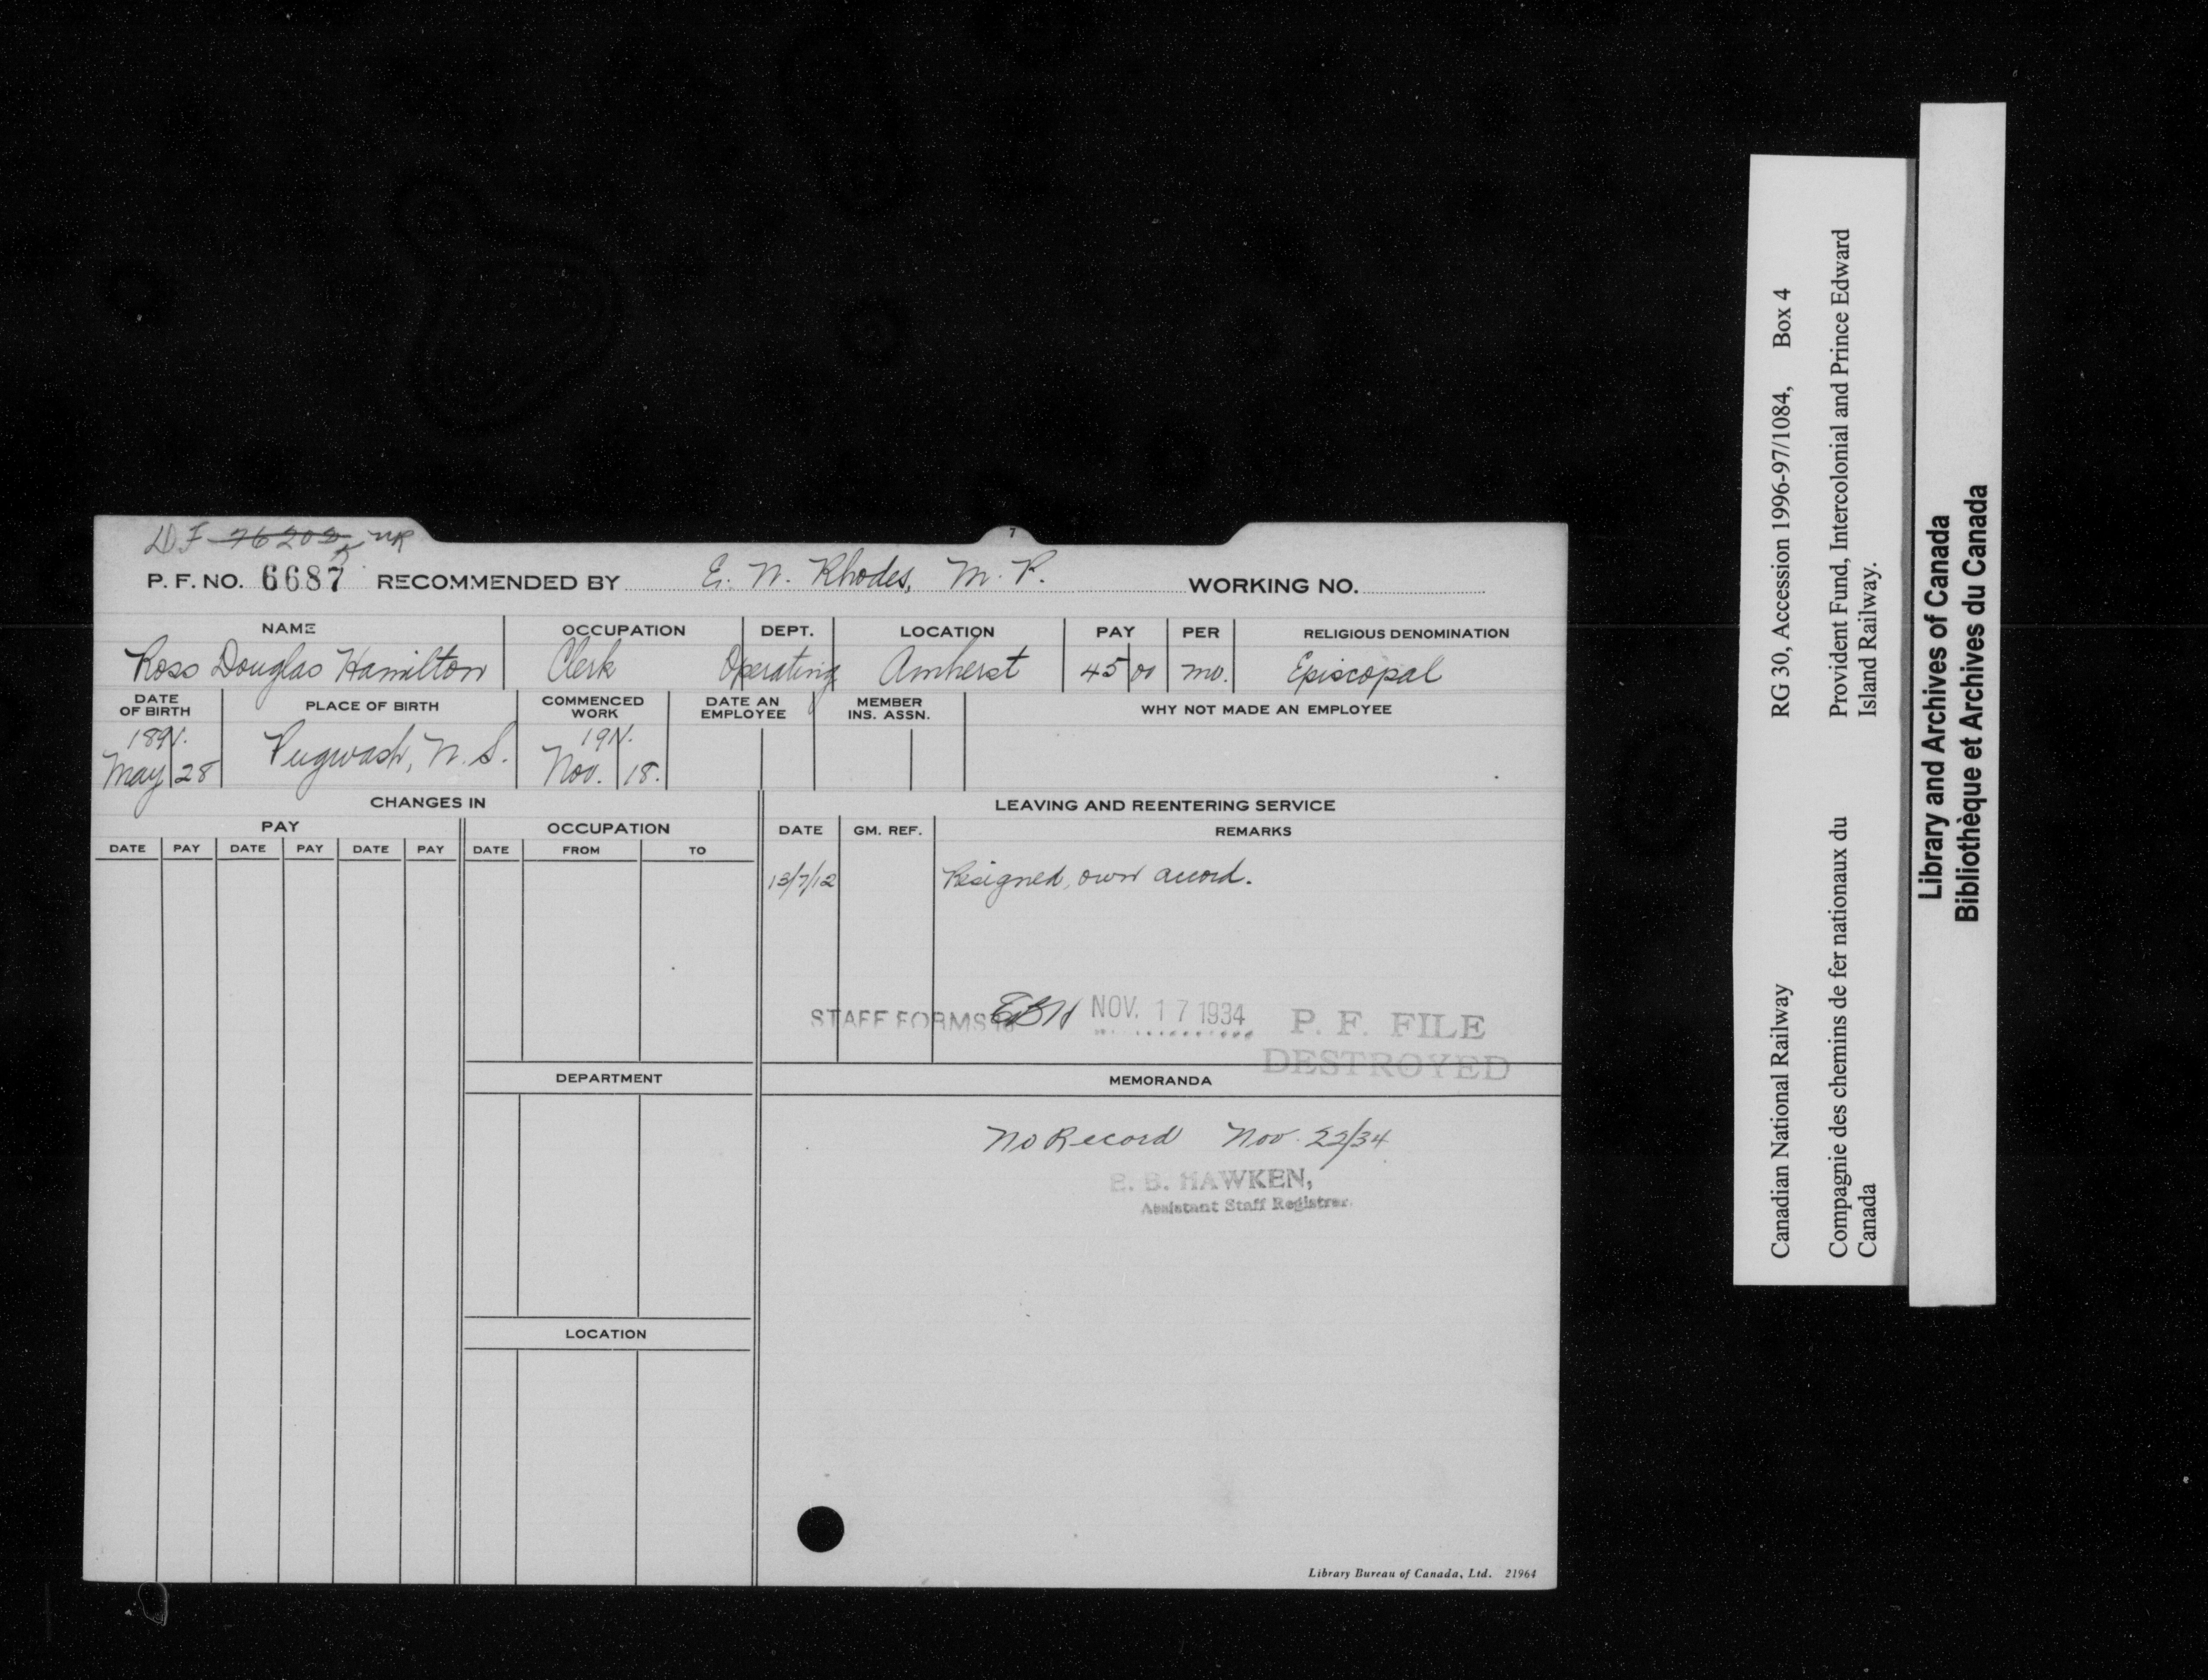 DF 76202 NR
7
P. F. NO. 6687 RECOMMENDED BY E. N. Rhodes, M. P. WORKING NO.
NAME OCCUPATION DEPT. LOCATION PAY PER RELIGIOUS DENOMINATION
Ross Douglas Hamilton Clerk Operating Amherst 45 00 mo. Episcopal
DATE OF BIRTH PLACE OF BIRTH COMMENCED WORK DATE AN EMPLOYEE MEMBER INS. ASSN. WHY NOT MADE AN EMPLOYEE
1891. 1911.
May 28 Pugwash, N. S. Nov. 18.
CHANGES IN LEAVING AND REENTERING SERVICE
PAY OCCUPATION DATE GM. REF. REMARKS
DATE PAY DATE PAY DATE PAY DATE FROM TO
13/7/12 Resigned, own accord.
STAFF FORMS EBH NOV. 17 1934 P. F. FILE
DESTROYED
DEPARTMENT MEMORANDA
No Record Nov. 22/34
E. B. HAWKEN,
Assistant Staff Registrar.
LOCATION
Library Bureau of Canada, Ltd. 21964
Canadian National Railway RG 30, Accession 1996-97/1084, Box 4
Compagnie des chemins de fer nationaux du Provident Fund, Intercolonial and Prince Edward
Canada Island Railway.
Library and Archives of Canada
Bibliothèque et Archives du Canada